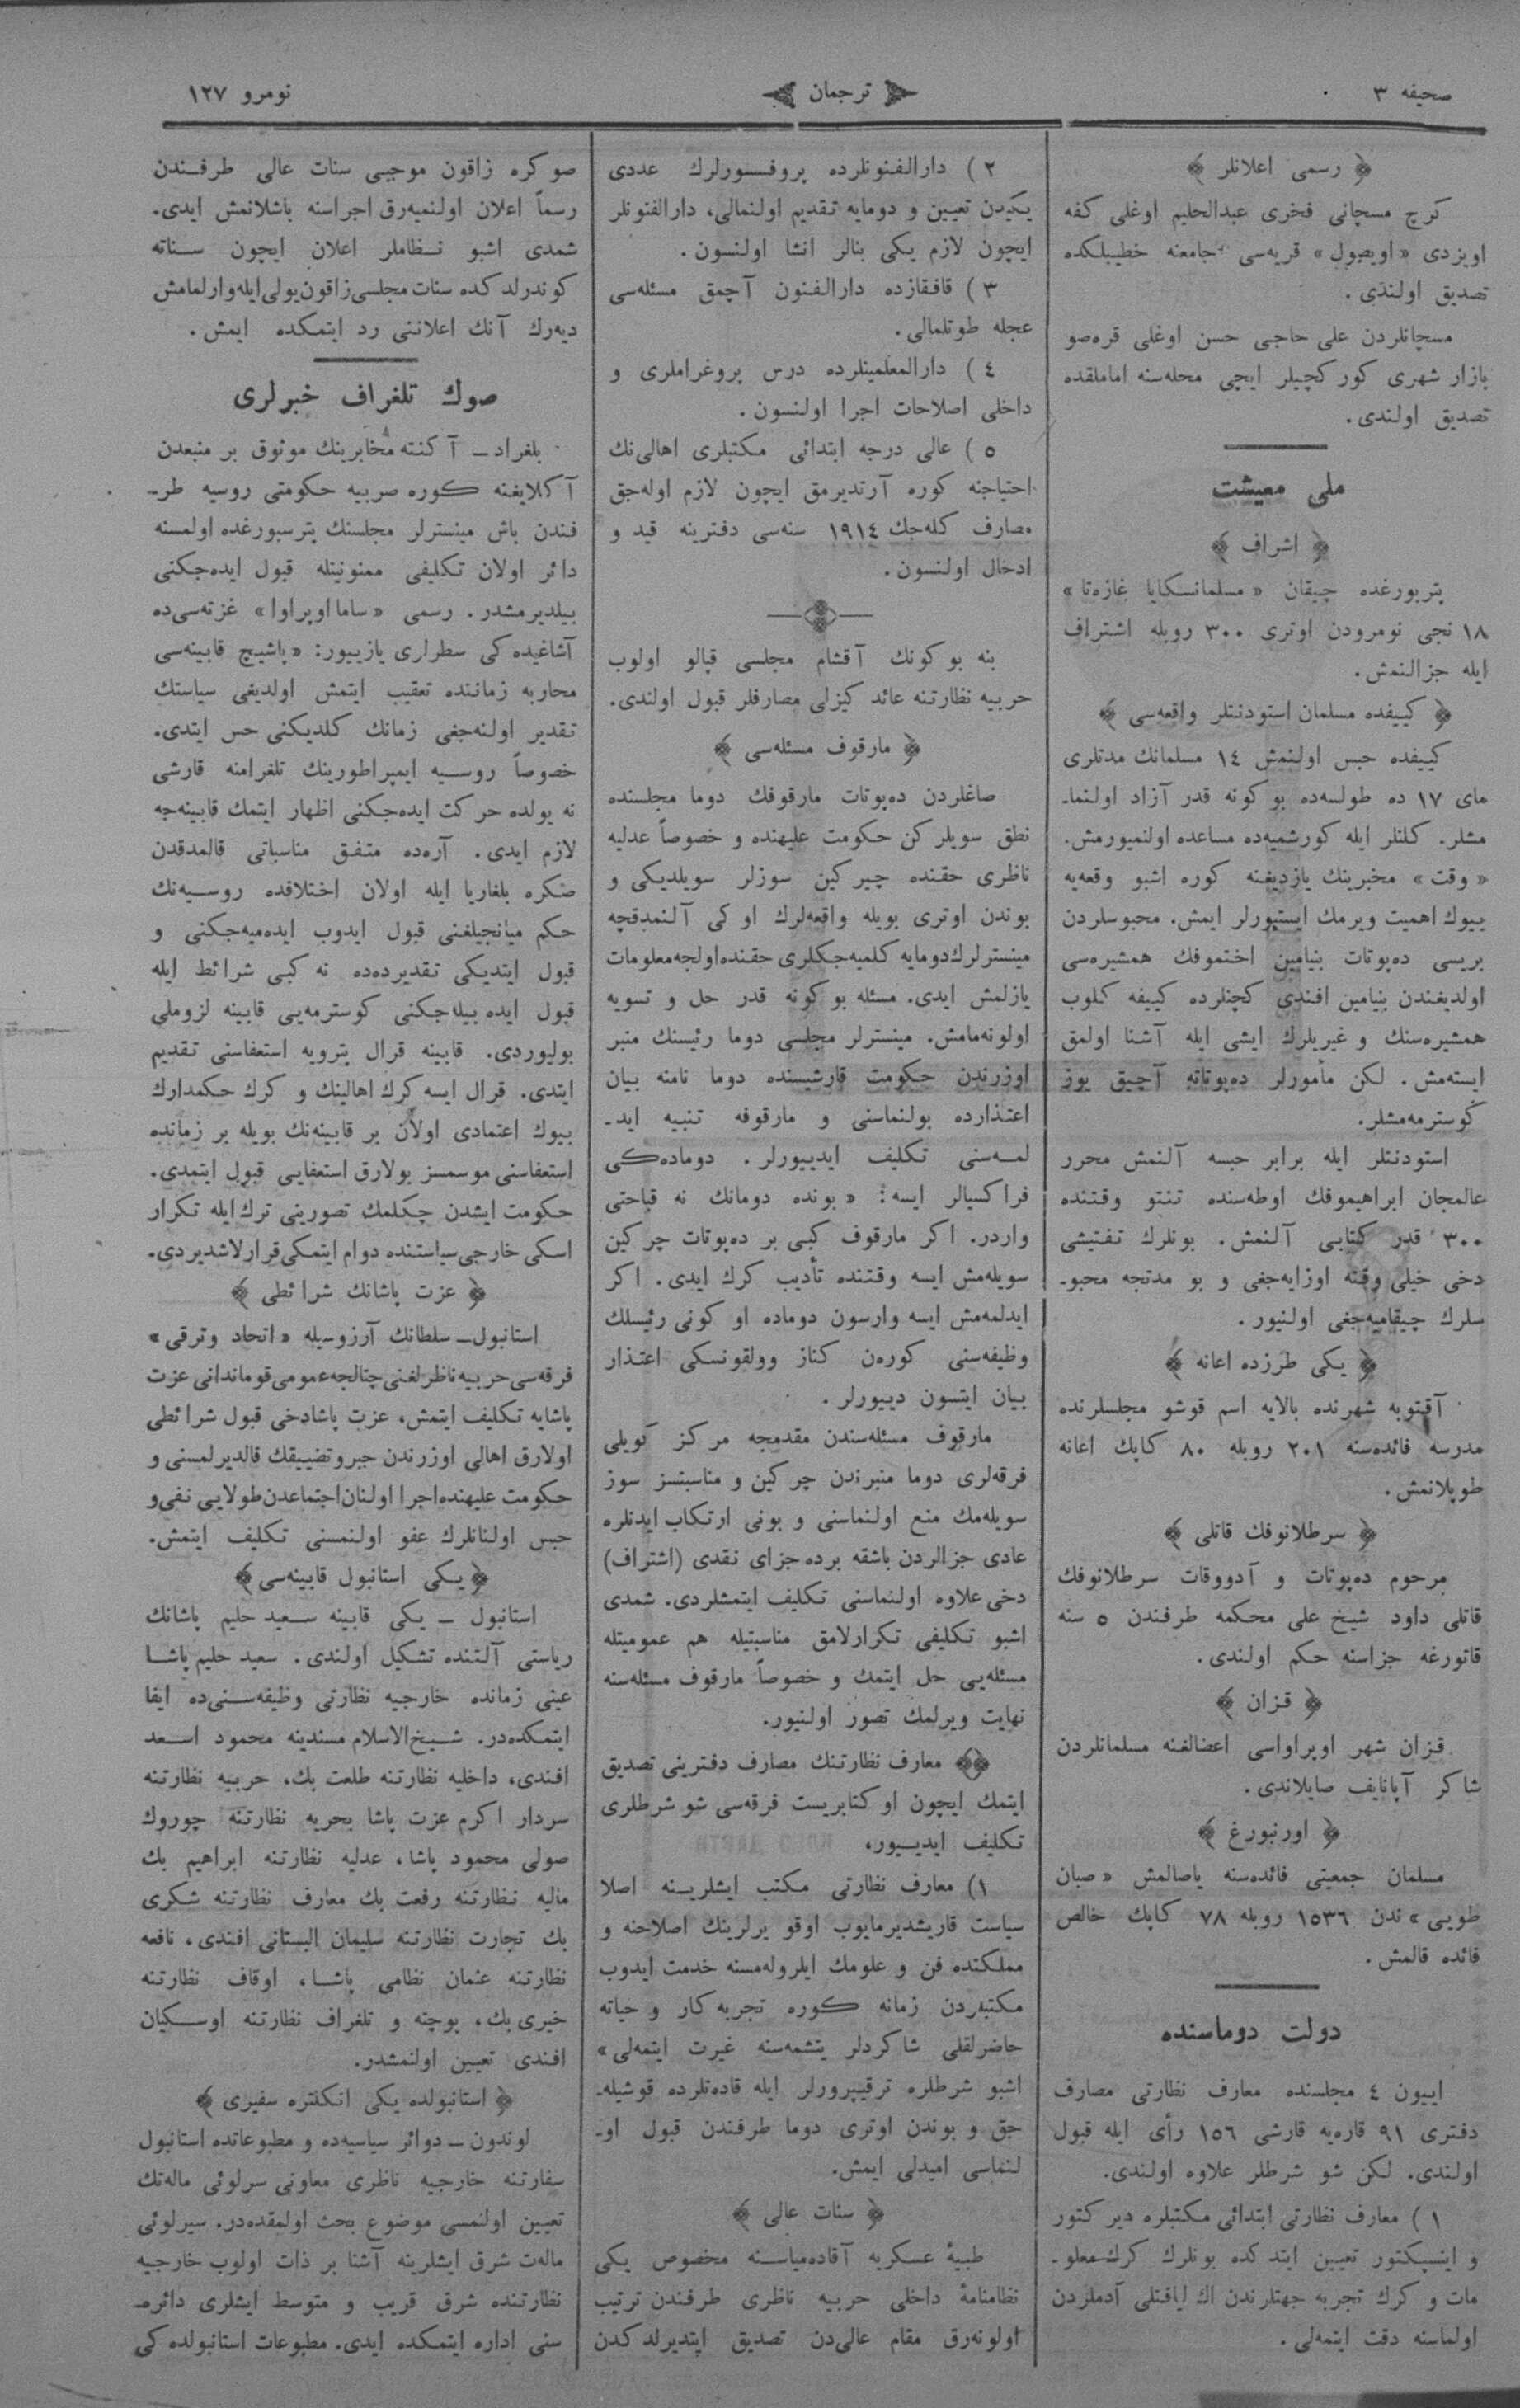 صحيفه ٣
ترجمان
نومرو ١٢٧
﴿ رسمی اعلانلر ﴾
كرچ مسچانی فخری عبدالحليم اوغلی كفه
اويزدی « اويصول » قريه‌سی جامعنه خطيبلكده
تصديق اولندی .
مسچانلردن علی حاجی حسن اوغلی قره‌صو
بازار شهری كوركچيلر ايچی محله‌سنه اماملقده
تصديق اولندی .
ملی معيشت
﴿ اشراف ﴾
پتربورغده چيقان « مسلمانسكايا غازه‌تا »
١٨ نجی نومرودن اوتری ٣٠٠ روبله اشتراف
ايله جزالنمش .
﴿ كييفده مسلمان استودنتلر واقعه‌سی ﴾
كييفده حبس اولنمش ١٤ مسلمانك مدتلری
مای ١٧ ده طولسه‌ده بو كونه قدر آزاد اولنما-
مشلر. كلنلر ايله كورشميه‌ده مساعده اولنميورمش.
« وقت » مخبرينك يازديغنه كوره اشبو وقعه‌يه
بيوك اهميت ويرمك ايستيورلر ايمش. محبوسلردن
بريسی ده‌پوتات بنيامين اختموفك همشيره‌سی
اولديغندن بنيامين افندی كچنلرده كييفه كلوب
همشيره‌سنك و غيريلرك ايشی ايله آشنا اولمق
ايسته‌مش . لكن مأمورلر ده‌پوتاته آچيق يوز
كوسترمه‌مشلر.
استودنتلر ايله برابر حبسه آلنمش محرر
عالمجان ابراهيموفك اوطه‌سنده تنتو وقتنده
٣٠٠ قدر كتابی آلنمش . بونلرك تفتيشی
دخی خيلی وقته اوزايه‌جغی و بو مدتجه محبو-
سلرك چيقاميه‌جغی اولنيور .
﴿ يكی طرزده اعانه ﴾
آقتوبه شهرنده بالايه اسم قوشو مجلسلرنده
مدرسه فائده‌سنه ٢٠١ روبله ٨٠ كاپك اعانه
طوپلانمش .
﴿ سرطلانوفك قاتلی ﴾
مرحوم ده‌پوتات و آدووقات سرطلانوفك
قاتلی داود شيخ علی محكمه طرفندن ٥ سنه
قاتورغه جزاسنه حكم اولندی .
﴿ قزان ﴾
قزان شهر اوپراواسی اعضالغنه مسلمانلردن
شاكر آپانايف صايلاندی .
﴿ اورنبورغ ﴾
مسلمان جمعيتی فائده‌سنه ياصالمش « صبان
طويی » ندن ١٥٣٦ روبله ٧٨ كاپك خالص
فائده قالمش .
دولت دوماسنده
اييون ٤ مجلسنده معارف نظارتی مصارف
دفتری ٩١ قاره‌يه قارشی ١٥٦ رأی ايله قبول
اولندی. لكن شو شرطلر علاوه اولندی.
١ ) معارف نظارتی ابتدائی مكتبلره ديركتور
و اينسپكتور تعيين ايتدكده بونلرك كرك معلو-
مات و كرك تجربه جهتلرندن اك لياقتلی آدملردن
اولماسنه دقت ايتمه‌لی .
٢ ) دارالفنونلرده پروفسورلرك عددی
يكيدن تعيين و دومايه تقديم اولنمالی، دارالفنونلر
ايچون لازم يكی بنالر انشا اولنسون .
٣ ) قافقازده دارالفنون آچمق مسئله‌سی
عجله طوتلمالی.
٤ ) دارالمعلمينلرده درس پروغراملری و
داخلی اصلاحات اجرا اولنسون .
٥ ) عالی درجه ابتدائی مكتبلری اهالی‌نك
احتياجنه كوره آرتديرمق ايچون لازم اوله‌جق
مصارف كله‌جك ١٩١٤ سنه‌سی دفترينه قيد و
ادخال اولنسون .
ينه بو كونك آقشام مجلسی قپالو اولوب
حربيه نظارتنه عائد كيزلی مصارفلر قبول اولندی.
﴿ مارقوف مسئله‌سی ﴾
صاغلردن ده‌پوتات مارقوفك دوما مجلسنده
نطق سويلركن حكومت عليهنده و خصوصاً عدليه
ناظری حقنده چيركين سوزلر سويلديكی و
بوندن اوتری بويله واقعه‌لرك اوكی آلنمدقچه
مينسترلرك دومايه كلميه‌جكلری حقنده اولجه معلومات
يازلمش ايدی. مسئله بو كونه قدر حل و تسويه
اولونه‌مامش. مينسترلر مجلسی دوما رئيسنك منبر
اوزرندن حكومت قارشيسنده دوما نامنه بيان
اعتذارده بولنماسنی و مارقوفه تنبيه ايد-
لمه‌سنی تكليف ايدييورلر . دوماده‌كی
فراكسيالر ايسه: « بونده دومانك نه قباحتی
واردر. اكر مارقوف كبی بر ده‌پوتات چركين
سويله‌مش ايسه وقتنده تأديب كرك ايدی. اكر
ايدلمه‌مش ايسه وارسون دوماده او كونی رئيسلك
وظيفه‌سنی كوره‌ن كناز وولقونسكی اعتذار
بيان ايتسون دييورلر .
مارقوف مسئله‌سندن مقدمجه مركز كويلی
فرقه‌لری دوما منبرندن چركين و مناسبتسز سوز
سويله‌مك منع اولنماسنی و بونی ارتكاب ايدنلره
عادی جزالردن باشقه برده جزای نقدی (اشتراف)
دخی علاوه اولنماسنی تكليف ايتمشلردی. شمدی
اشبو تكليفی تكرارلامق مناسبتيله هم عموميتله
مسئله‌يی حل ايتمك و خصوصاً مارقوف مسئله‌سنه
نهايت ويرلمك تصور اولنيور.
﴿﴾ معارف نظارتنك مصارف دفترينی تصديق
ايتمك ايچون اوكتابريست فرقه‌سی شو شرطلری
تكليف ايدييور،
١) معارف نظارتی مكتب ايشلرينه اصلا
سياست قاريشديرمايوب اوقو يرلرينك اصلاحنه و
مملكتده فن و علومك ايلروله‌مسنه خدمت ايدوب
مكتبدن زمانه كوره تجربه‌كار و حياته
حاضرلقلی شاكردلر يتشمه‌سنه غيرت ايتمه‌لی »
اشبو شرطلره ترقيپرورلر ايله قاده‌تلرده قوشيله-
جق و بوندن اوتری دوما طرفندن قبول او-
لنماسی اميدلی ايمش.
﴿ سنات عالی ﴾
طبيهٔ عسكريه آقاده‌مياسنه مخصوص يكی
نظامنامهٔ داخلی حربيه ناظری طرفندن ترتيب
اولونه‌رق مقام عالی‌دن تصديق ايتديرلدكدن
صوكره زاقون موجبی سنات عالی طرفندن
رسماً اعلان اولنميه‌رق اجراسنه باشلانمش ايدی.
شمدی اشبو نظاملر اعلان ايچون سناته
كوندرلدكده سنات مجلسی زاقون يولی ايله وارلمامش
ديه‌رك آنك اعلاننی رد ايتمكده ايمش .
صوك تلغراف خبرلری
بلغراد ــ آكنته مخابرينك موثوق بر منبعدن
آكلايغنه كوره صربيه حكومتی روسيه طر-
فندن باش مينسترلر مجلسنك پترسبورغده اولمسنه
دائر اولان تكليفی ممنونيتله قبول ايده‌جكنی
بيلديرمشدر . رسمی « ساما اوپراوا » غزته‌سی‌ده
آشاغيده‌كی سطراری يازييور: « پاشيچ قابينه‌سی
محاربه زماننده تعقيب ايتمش اولديغی سياستك
تقدير اولنه‌جغی زمانك كلديكنی حس ايتدی.
خصوصاً روسيه ايمپراطورينك تلغرامنه قارشی
نه يولده حركت ايده‌جكنی اظهار ايتمك قابينه‌جه
لازم ايدی. آره‌ده متفق مناسباتی قالمدقدن
صكره بلغاريا ايله اولان اختلافده روسيه‌نك
حكم ميانجيلغنی قبول ايدوب ايده‌ميه‌جكنی و
قبول ايتديكی تقديرده‌ده نه كبی شرائط ايله
قبول ايده بيله‌جكنی كوسترمه‌يی قابينه لزوملی
بوليوردی. قابينه قرال پترويه استعفاسنی تقديم
ايتدی. قرال ايسه كرك اهالينك و كرك حكمدارك
بيوك اعتمادی اولان بر قابينه‌نك بويله بر زمانده
استعفاسنی موسمسز بولارق استعفايی قبول ايتمدی.
حكومت ايشدن چكلمك تصورينی ترك ايله تكرار
اسكی خارجی سياستنده دوام ايتمكی قرارلاشديردی.
﴿ عزت پاشانك شرائطی ﴾
استانبول ــ سلطانك آرزوسيله « اتحاد وترقی »
فرقه‌سی حربيه ناظرلغنی چتالجه عمومی قوماندانی عزت
پاشايه تكليف ايتمش، عزت پاشا دخی قبول شرائطی
اولارق اهالی اوزرندن جبر و تضييقك قالديرلمسنی و
حكومت عليهنده اجرا اولنان اجتماعدن طولايی نفی و
حبس اولنانلرك عفو اولنمسنی تكليف ايتمش.
﴿ يكی استانبول قابينه‌سی ﴾
استانبول ــ يكی قابينه سعيد حليم پاشانك
رياستی آلتنده تشكيل اولندی . سعيد حليم پاشا
عينی زمانده خارجيه نظارتی وظيفه‌سنی‌ده ايفا
ايتمكده‌در. شيخ‌الاسلام مسندينه محمود اسعد
افندی، داخليه نظارتنه طلعت بك، حربيه نظارتنه
سردار اكرم عزت پاشا بحريه نظارتنه چوروك
صولی محمود پاشا، عدليه نظارتنه ابراهيم بك
ماليه نظارتنه رفعت بك معارف نظارتنه شكری
بك تجارت نظارتنه سليمان البستانی افندی، نافعه
نظارتنه عثمان نظامی پاشا، اوقاف نظارتنه
خيری بك، پوچته و تلغراف نظارتنه اوسكيان
افندی تعيين اولنمشدر.
﴿ استانبولده يكی انكلتره سفيری ﴾
لوندون ــ دوائر سياسيه‌ده و مطبوعاتده استانبول
سفارتنه خارجيه ناظری معاونی سرلوئی ماله‌تك
تعيين اولنمسی موضوع بحث اولمقده‌در. سيرلوئی
ماله‌ت شرق ايشلرينه آشنا بر ذات اولوب خارجيه
نظارتنده شرق قريب و متوسط ايشلری دائره-
سنی اداره ايتمكده ايدی. مطبوعات استانبولده‌كی